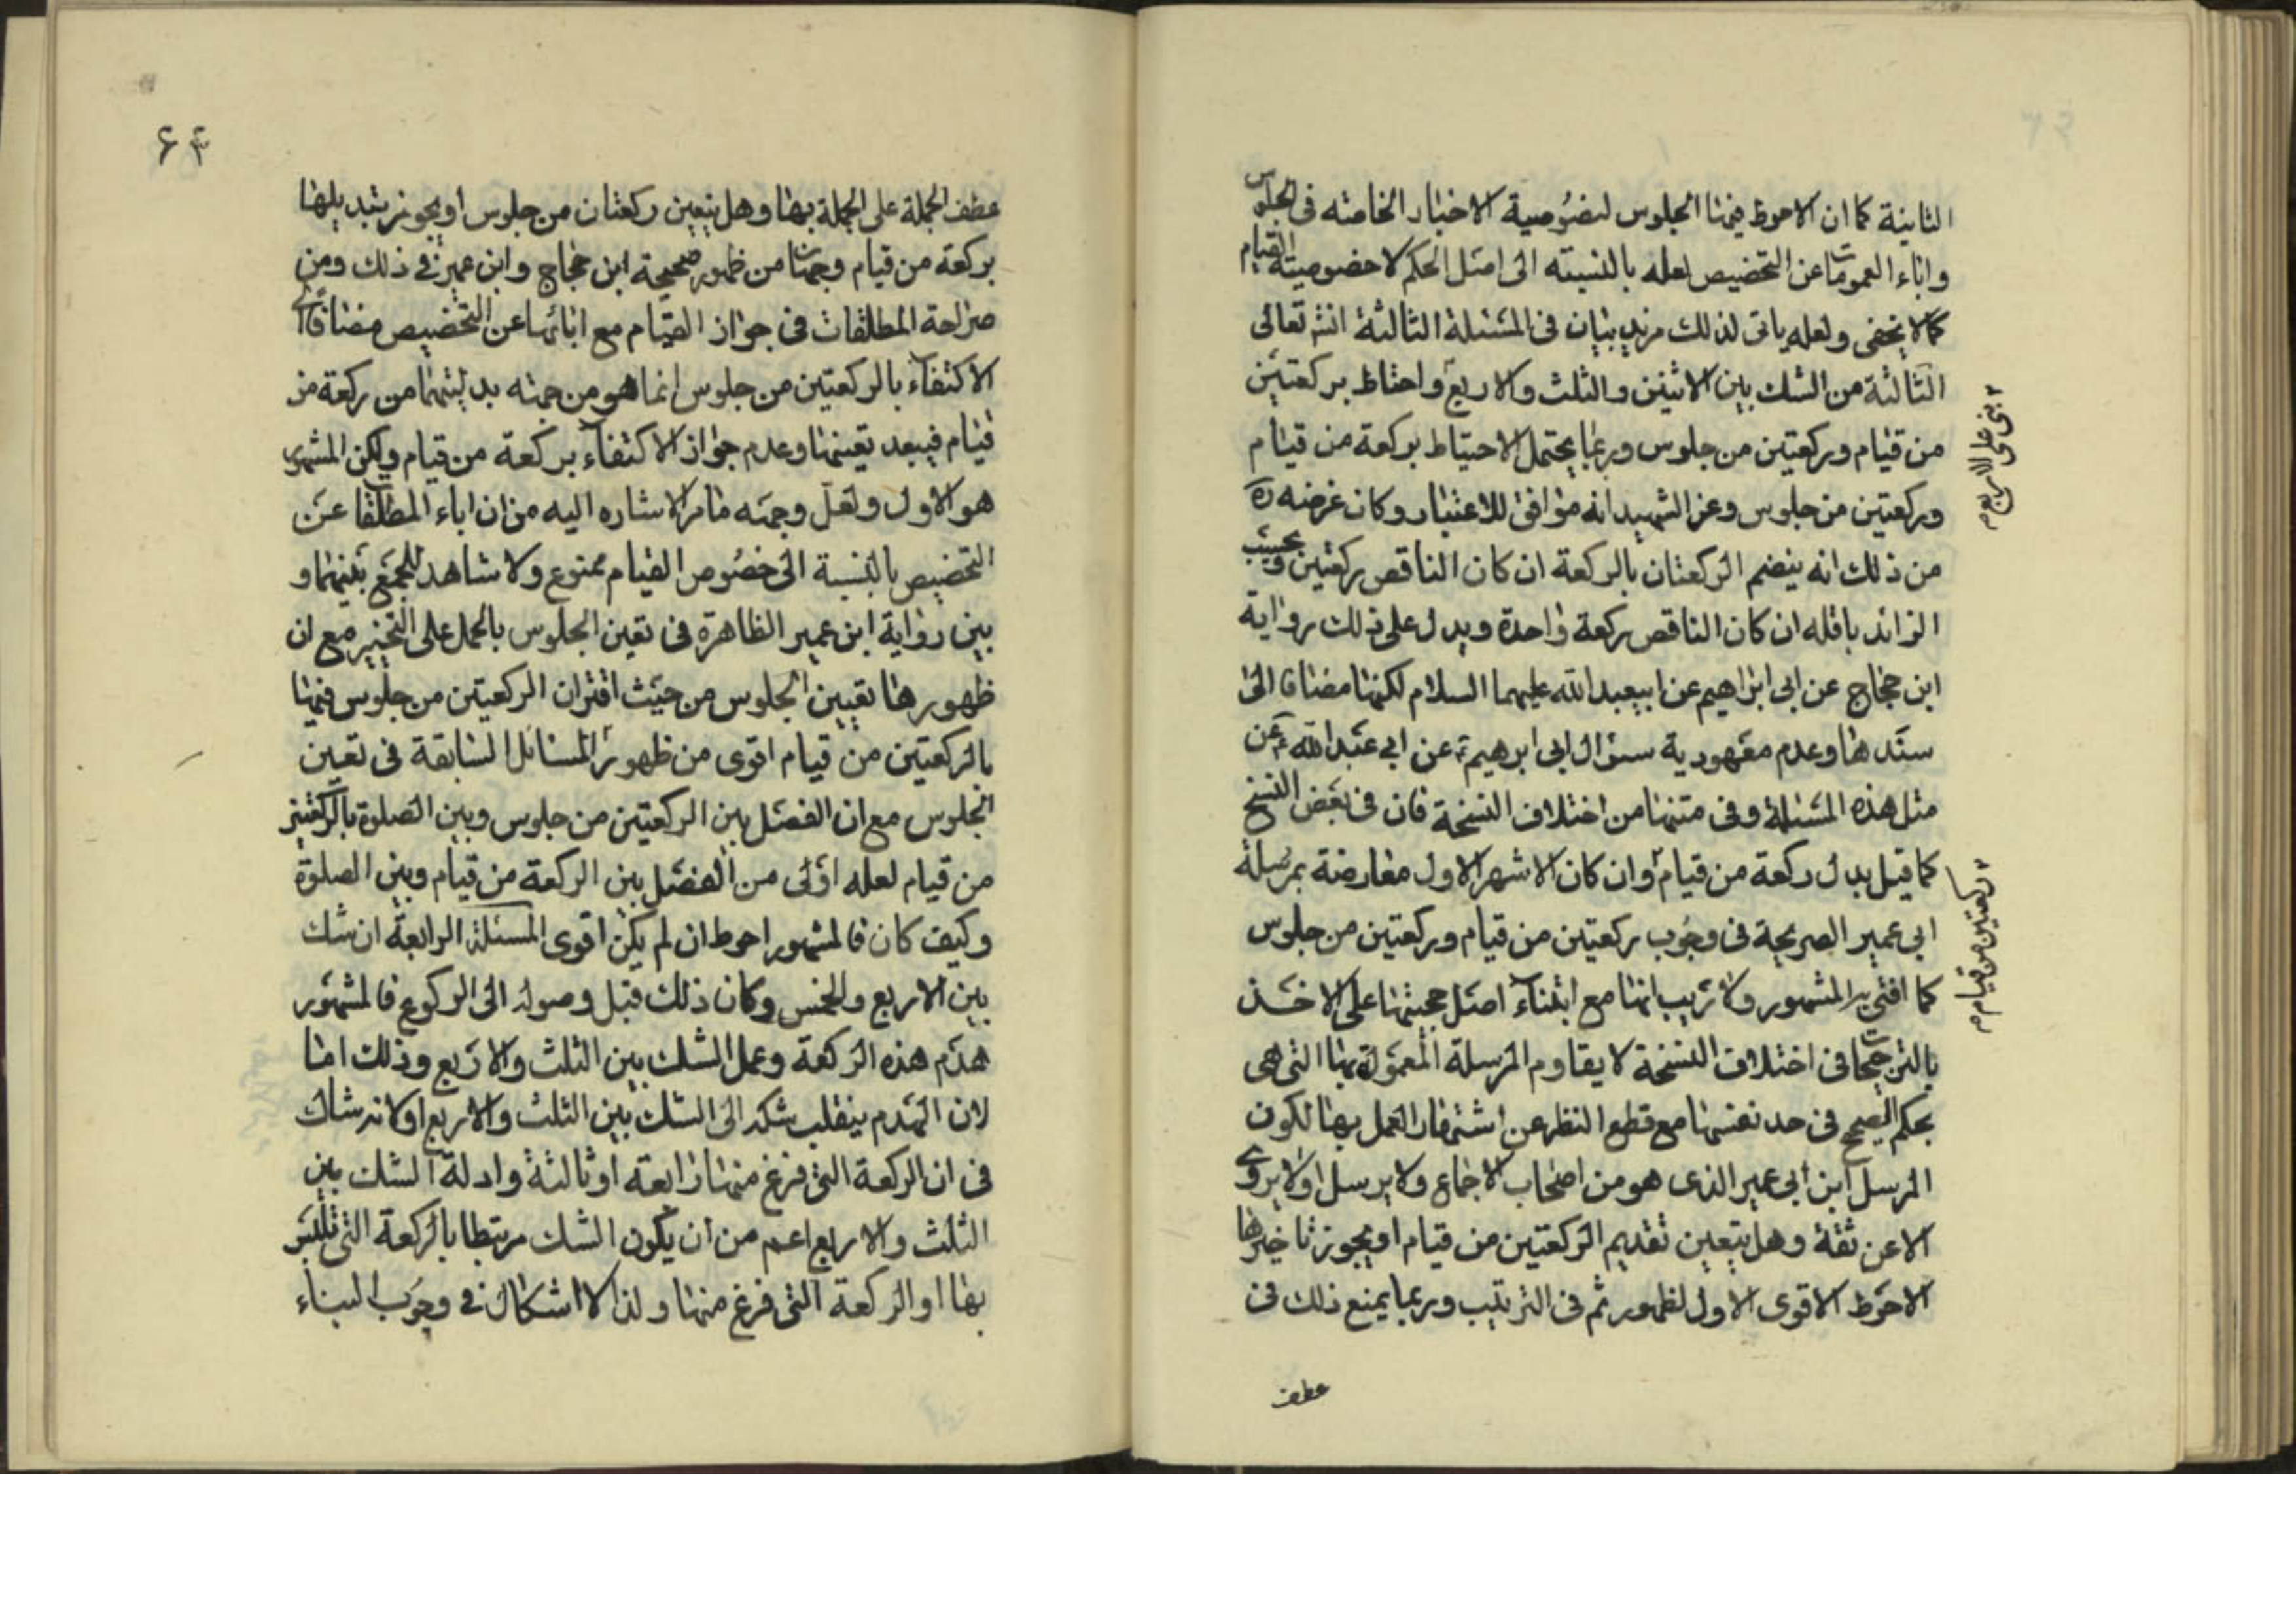 الثانية كما ان الاحوط فيها الجلوس لخصوصية الاخبار الخاصة فى الجلوس
واباء العمومات عن التخصيص لعله بالنسبته الى اصل الحكم لا خصوصيته القيام
كما لا يخفى ولعله ياتى لذلك مزيد بيان فى المسئلة الثالثة انشه تعالى
الثالثة من الشك بين الاثنين والثلث والاربع واحتاط بركعتين
۲ بنى على الاربع م
من قيام وركعتين من جلوس وربما يحتمل الاحتياط بركعة من قيام
وركعتين من جلوس وعن الشهيد انه موافق للاعتبار وكان غرضه ره
من ذلك انه ينضم الركعتان بالركعة ان كان الناقص ركعتين ويحسب
الزائد نافله ان كان الناقص ركعة واحدة ويدل على ذلك رواية
ابن حجاج عن ابى ابراهيم عن ابيعبدالله عليهما السلام لكنها مضافا الى
سندها وعدم معهودية سئوال ابى ابرهيم ع عن ابي عبدالله ع عن
مثل هذه المسئلة وفى متنها من اختلاف النسخة فان فى بعض النسخ
كما قيل بدل ركعة من قيام ۲ وان كان الاشهر الاول معارضة بمرسلة
۲ ركعتين من قيام م
ابي عمير الصريحة فى وجوب ركعتين من قيام وركعتين من جلوس
كما افتى به المشهور ولا ريب انها مع ابتناء اصل حجيتها على الاخذ
بالترجيحات فى اختلاف النسخة لا يقاوم المرسلة المعمولة بها التى هى
بحكم الصحيح فى حد نفسها مع قطع النظر عن اشتهار العمل بها لكون
المرسل ابن ابى عمير الذى هو من اصحاب الاجماع ولا يرسل او لا يروى
الا عن ثقة وهل يتعين تقديم الركعتين من قيام او يجوز تاخيرها
الاحوط الاقوى الاول لظهور ثم فى الترتيب وربما يمنع ذلك فى
عطف
۶۴
عطف الجملة على الجملة بها وهل يتعين ركعتان من جلوس او يجوز تبديلها
بركعة من قيام وجهان من ظهور صحيحة ابن حجاج وابن عمير فى ذلك ومن
صراحة المطلقات فى جواز القيام مع ابائها عن التخصيص مضافا الى
الاكتفاء بالركعتين من جلوس انما هو من جهته بدليتهما من ركعة من
قيام فيبعد تعينها وعدم جواز الاكتفاء بركعة من قيام ولكن المشهور
هو الاول ولعل وجهه ما مر الاشاره اليه من ان اباء المطلقات عن
التخصيص بالنسبة الى خصوص القيام ممنوع ولا شاهد للجمع بينهما و
بين رواية ابن عمير الظاهرة فى تعين الجلوس بالحمل على التخيير مع ان
ظهورها تعيين الجلوس من حيث اقتران الركعتين من جلوس فيها
بالركعتين من قيام اقوى من ظهور المسائل السابقة فى تعين
الجلوس مع ان الفصل بين الركعتين من جلوس وبين الصلوة بالركعتين
من قيام لعله اولى من الفصل بين الركعة من قيام وبين الصلوة
وكيف كان فالمشهور احوط ان لم يكن اقوى المسئلة الرابعة ان شك
بين الاربع والخمس وكان ذلك قبل وصوله الى الركوع فالمشهور
هدم هذه الركعة وعمل الشك بين الثلث والاربع وذلك اما
لان الهدم ينقلب شكه الى الشك بين الثلث والاربع او لانه شاك
فى ان الركعة التى فرغ منها رابعة او ثالثة وادلة الشك بين
الثلث والاربع اعم من ان يكون الشك مرتبطا بالركعة التى تلبس
بها او الركعة التى فرغ منها ولذا لا اشكال فى وجوب البناء